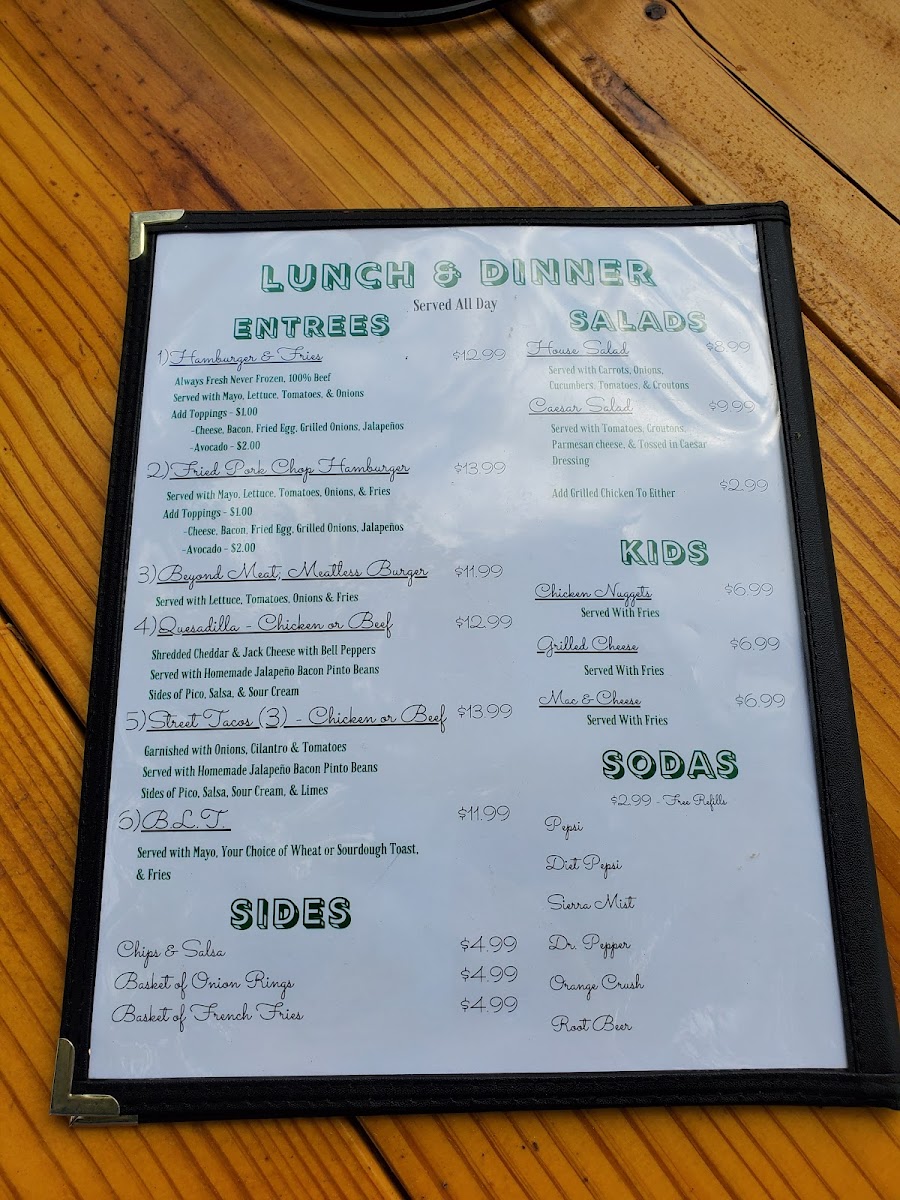 LUNCH & DINNER
Served All Day
ENTREES
1) Hamburger & Fries $12.99
Always Fresh Never Frozen, 100% Beef
Served with Mayo, Lettuce, Tomatoes, & Onions
Add Toppings - $1.00
-Cheese, Bacon, Fried Egg, Grilled Onions, Jalapeños
-Avocado - $2.00
2) Fried Pork Chop Hamburger $13.99
Served with Mayo, Lettuce, Tomatoes, Onions, & Fries
Add Toppings - $1.00
-Cheese, Bacon, Fried Egg, Grilled Onions, Jalapeños
-Avocado - $2.00
3) Beyond Meat, Meatless Burger $11.99
Served with Lettuce, Tomatoes, Onions & Fries
4) Quesadilla - Chicken or Beef $12.99
Shredded Cheddar & Jack Cheese with Bell Peppers
Served with Homemade Jalapeño Bacon Pinto Beans
Sides of Pico, Salsa, & Sour Cream
5) Street Tacos (3) - Chicken or Beef $13.99
Garnished with Onions, Cilantro & Tomatoes
Served with Homemade Jalapeño Bacon Pinto Beans
Sides of Pico, Salsa, Sour Cream, & Limes
6) B.L.T. $11.99
Served with Mayo, Your Choice of Wheat or Sourdough Toast,
& Fries
SIDES
Chips & Salsa $4.99
Basket of Onion Rings $4.99
Basket of French Fries $4.99
SALADS
House Salad $8.99
Served with Carrots, Onions,
Cucumbers, Tomatoes, & Croutons
Caesar Salad $9.99
Served with Tomatoes, Croutons,
Parmesan cheese, & Tossed in Caesar
Dressing
Add Grilled Chicken To Either $2.99
KIDS
Chicken Nuggets $6.99
Served With Fries
Grilled Cheese $6.99
Served With Fries
Mac & Cheese $6.99
Served With Fries
SODAS
$2.99 - Free Refills
Pepsi
Diet Pepsi
Sierra Mist
Dr. Pepper
Orange Crush
Root Beer